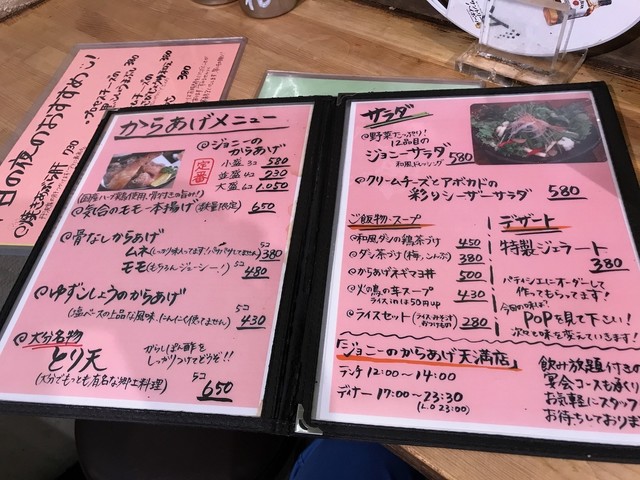 からあげメニュー
@ジョニーの
からあげ
定番
小盛 3コ 580
並盛 4コ 730
大盛 6コ 1.050
(国産ハーブ鶏使用、骨付きの旨み!!)
@気合のモモ一本揚げ(数量限定) 650
@骨なしからあげ
ムネ(しっかり味ってます!パサパサしてません) 5コ 380
モモ(もちろんジューシー!) 5コ 480
@ゆずこしょうのからあげ
(塩ベースの上品な風味、にんにく使てません) 5コ 430
@大分名物
とり天
からしぽん酢を
しっかりつけてどうぞ!!
(大分でもっとも有名な郷土料理) 650
サラダ
@野菜たっぷり!
12品目の
ジョニーサラダ 580
和風ドレッシング
@クリームチーズとアボカドの
彩りシーザーサラダ 580
ご飯物・スープ
@和風ダシの鶏茶づけ 450
@ダシ茶づけ(梅,こんぶ) 380
@からあげネギマヨ丼 500
@火の鳥の辛スープ 430
ライスinは50円up
@ライスセット(ライス・みそ汁 おつけもの) 280
デザート
特製ジェラート
380
パティシエにオーダーして
作ってもらってます!
今回の味は、
POPを見て下さい!
次々と味を変えていきます!
「ジョニーのからあげ天満店」
ランチ 12:00〜14:00
ディナー 17:00〜23:30
(L.O 23:00)
飲み放題付きの
宴会コースも
お気軽にスタッフ
お待ちしておりま